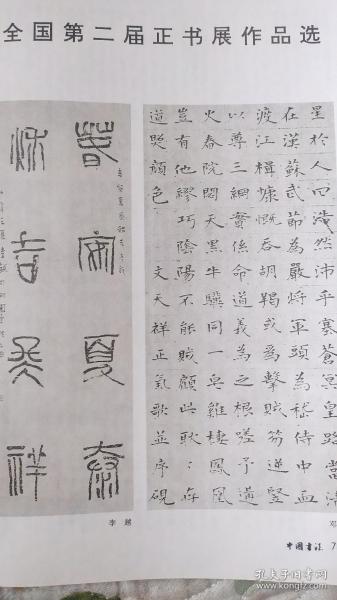 全国第二届正书展作品选
星於人曰浩然沛乎塞蒼冥皇路當清
在漢蘇武節為嚴將軍頭為嵇侍中血
渡江楫慷慨吞胡羯或為擊賊笏逆豎
以尊三綱實係命道義為之根嗟予遘
火春院閟天黑牛驥同一皂雞棲鳳凰
豈有他繆巧陰陽不能賊顧此耿：在
道顏色 文天祥正氣歌並序硯
春安夏泰
秋吉冬祥
李越
邓
中国书法 7
孔夫子旧书网